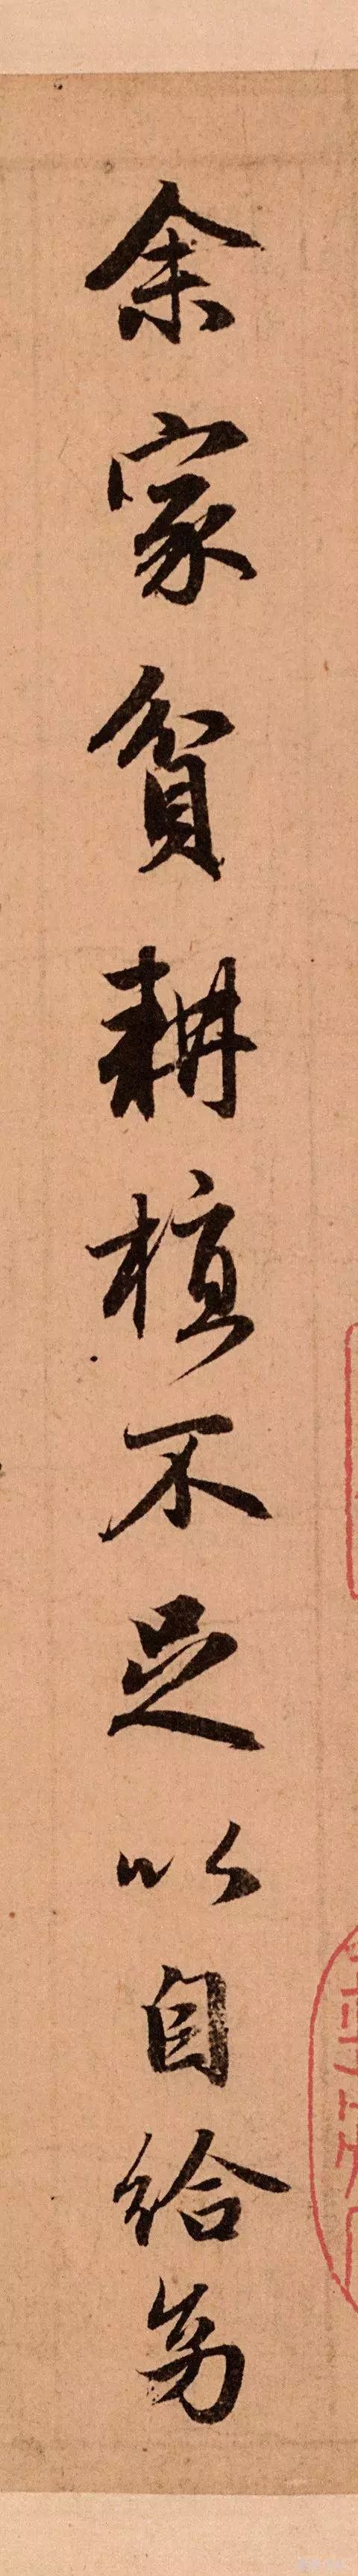 余家貧耕植不足以自給幼